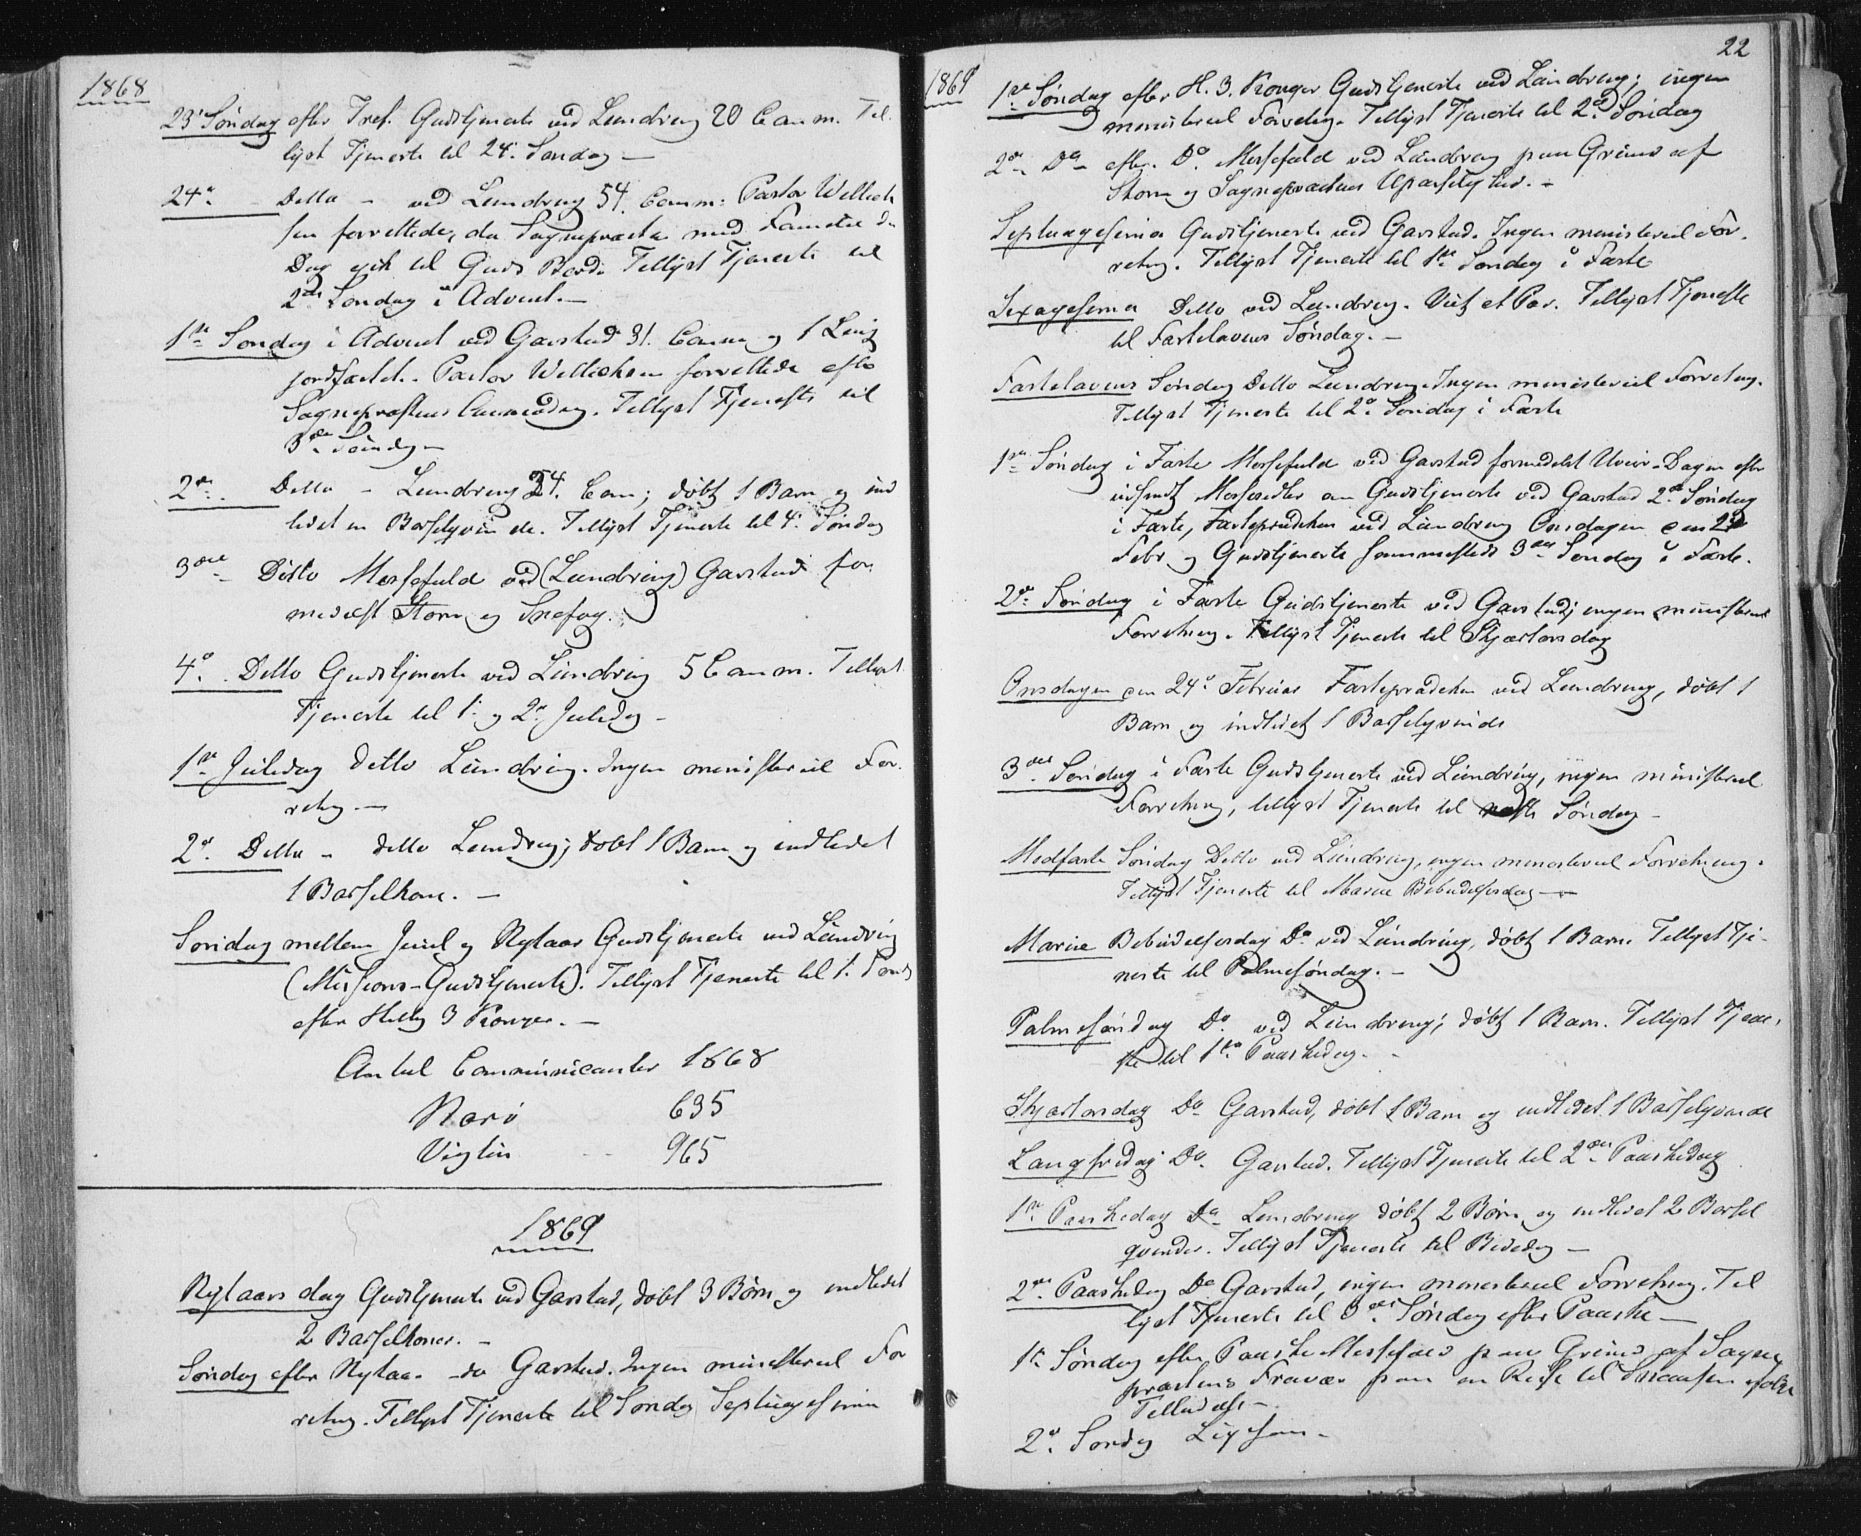 1868
23' Søndag efter Tref. Gudstjeneste ved Lundring 20 Comm. Til-
lyst Tjeneste til 24' Søndag —
24de Ditto - ved Lundring 54 Comm: Pastor Wettek
sen forrettede, da Sognepræsten med Familie
Dag gik til Guds Bord. Tillyst Tjeneste til
2den Søndag i Advent. —
1ste Søndag i Advent ved Garstad 31 Comm og 1 Liig
jordfæstet. Pastor forrettede efter
Sognepræstens Anmodng. Tillyst Tjeneste til
3die Søndg —
2den Ditto - Lundring 24. Com; døbt 1 Barn og ind
ledet en Barselqvinde. Tillyst Tjeneste til 4' Søndag
3die Ditto Messefald ved (Lundring) Garstad for-
medelst Storm og Snefog.
4de Ditto Gudstjeneste ved Lundring 5 Comm. Tillyst
Tjeneste til 1' og 2den Juledag —
1ste Juledag ditto Lundring. Ingen ministeriel For-
retng. —
2den Ditto - ditto Lundring; døbt 1 Barn og indledet
1 Barselkone. —
Søndag mellem Juul og Nytaar Gudstjeneste ved Lundring
(Missions-Gudstjeneste). Tillyst Tjeneste til 1. Sønd
efter Hellig 3 Konger. —
Antal Communicanter 1868
Nærø 635
Vigten 965
1869
Nytaarsdag Gudstjeneste ved Garstad, døbt 3 Børn og indledet
2 Barselkoner. —
Søndag efter Nytaar do Garstad. Ingen ministeriel For
retng. Tillyst Tjeneste til Søndag Septuagesima
22
1869
1ste Søndag efter H. 3. Konger Gudstjeneste ved Lundring; ingen
ministeriel Forretng. Tillyst Tjeneste til 2den Søndag
2den Do efter Do Messefald ved Lundring paa Grund af
Storm og Sognepræstens Upasselighed. —
Septuagesima Gudstjeneste ved Garstad. Ingen ministeriel For-
retng. Tillyst Tjeneste til 1ste Søndag i Faste
Sexagesima Ditto ved Lundring. Viet et Par. Tillyst Tjeneste
til Fastelavens Søndag. —
Fastelavens Søndag Ditto Lundring. Ingen ministeriel Forretng.
Tillyst Tjeneste til 2den Søndag i Faste
1ste Søndag i Faste Messefald ved Garstad formedelst Uveir. Dagen efter
udsendt Messesedler om Gudstjeneste ved Garstad 2den Søndag
i Faste, Fasteprædiken ved Lundring Onsdagen den 24
Febr og Gudstjeneste sammesteds 3die Søndag i Faste.
2den Søndag i Faste Gudstjeneste ved Garstad; ingen ministeriel
Forretng. Tillyst Tjeneste til Skjærtorsdag
Onsdagen den 24de Februar Fasteprædiken ved Lundring, døbt 1
Barn og indledet 1 Barselqvinde
3die Søndag i Faste Gudstjeneste ved Lundring, ingen ministeriel
Forretng, tillyst Tjeneste til næste Søndag —
Midfaste Søndag Ditto ved Lundring, ingen ministeriel Forretning.
Tillyst Tjeneste til Mariæ Bebudelsesdag —
Mariæ Bebudelsesdag Do ved Lundring, døbt 1 Barn. Tillyst Tje-
neste til Palmesøndag. —
Palmesøndag Do ved Lundring; døbt 1 Barn. Tillyst Tjene-
ste til 1ste Paaskedag. —
Skjærtorsdag Do Garstad, døbt 1 Barn og indledet 1 Barselqvinde
Langfredag Do Garstad. Tillyst Tjeneste til 2den Paaskedag
1ste Paaskedag Do Lundring døbt 2 Børn og indledet 2 Barsel
qvinder. Tillyst Tjeneste til Bededag —
2den Paaskedag Do Garstad, ingen ministeriel Forretng. Til
lyst Tjeneste til 3die Søndag efter Paaske —
1ste Søndag efter Paaske Messefald paa Grund af Sogne
præstens Fravær paa en Reise til Snaasen efter
Tilladelse —
2den Søndag Ligesaa —